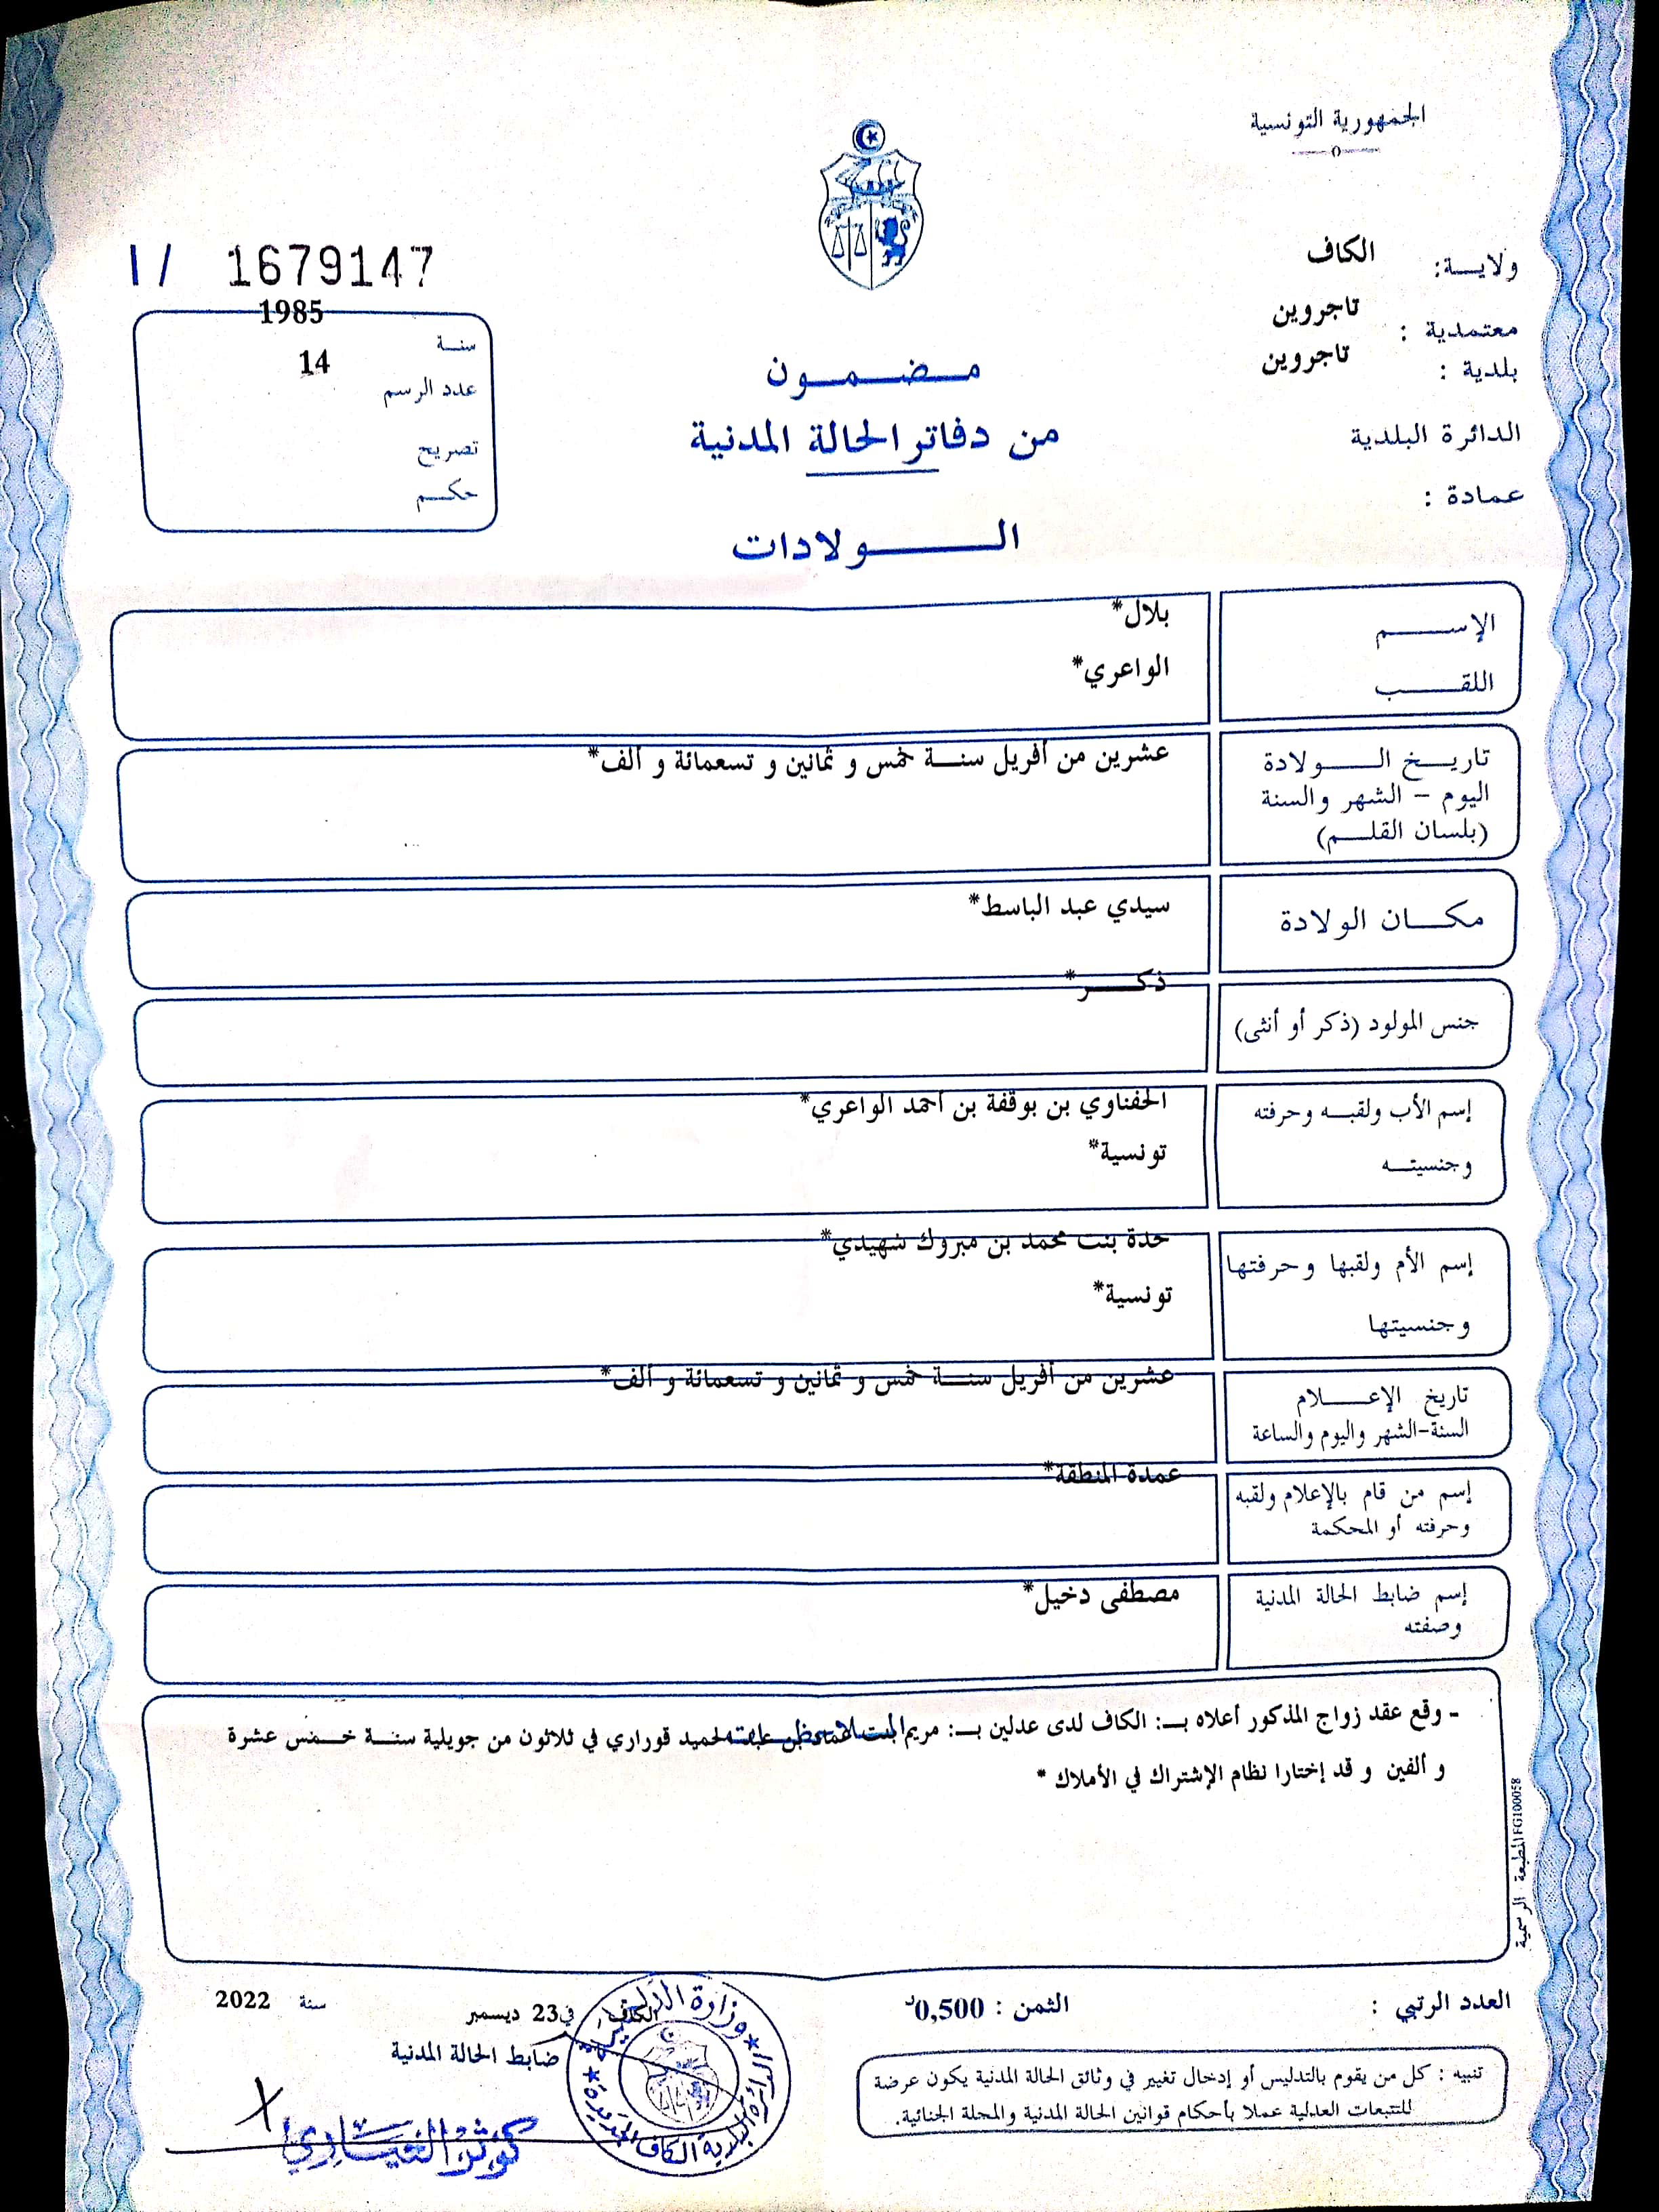 الجمهورية التونسية
ولايـــة: الكاف
معتمدية : تاجروين
بلدية : تاجروين
الدائرة البلدية
عمادة :
I / 1679147
سنـة 1985
عدد الرسم 14
تصريح
حكـم
مـضـمـون
من دفاتر الحالة المدنية
الـــولادات
الإســـم بلال*
اللقـــب الواعري*
تاريـــخ الـــولادة عشرين من أفريل سنـــة خمس و ثمانين و تسعمائة و ألف*
اليوم - الشهر والسنة
(بلسان القلـــم)
مكـــان الولادة سيدي عبد الباسط*
جنس المولود (ذكر أو أنثى) ذكـــر*
إسم الأب ولقبـــه وحرفته الحفناوي بن بوقفة بن أحمد الواعري*
وجنسيتـــه تونسية*
إسم الأم ولقبها وحرفتها حدة بنت محمد بن مبروك شهيدي*
وجنسيتها تونسية*
تاريخ الإعـــلام عشرين من أفريل سنـــة خمس و ثمانين و تسعمائة و ألف*
السنة-الشهر واليوم والساعة
إسم من قام بالإعلام ولقبه عمدة المنطقة*
وحرفته أو المحكمة
إسم ضابط الحالة المدنية مصطفى دخيل*
وصفته
- وقع عقد زواج المذكور أعلاه بـ: الكاف لدى عدلين بـ: مريم بنت بن عبد الحميد قوراري في ثلاثون من جويلية سنـــة خـــمس عشرة
و ألفين و قد إختارا نظام الإشتراك في الأملاك *
المطبعة الرسمية FG100058
العدد الرتبي :
الثمن : 0,500د
الكاف في 23 ديسمبر سنة 2022
ضابط الحالة المدنية
تنبيه : كل من يقوم بالتدليس أو إدخال تغيير في وثائق الحالة المدنية يكون عرضة
للتتبعات العدلية عملا بأحكام قوانين الحالة المدنية والمجلة الجنائية.
وزارة الداخلية
كوثر العيادي